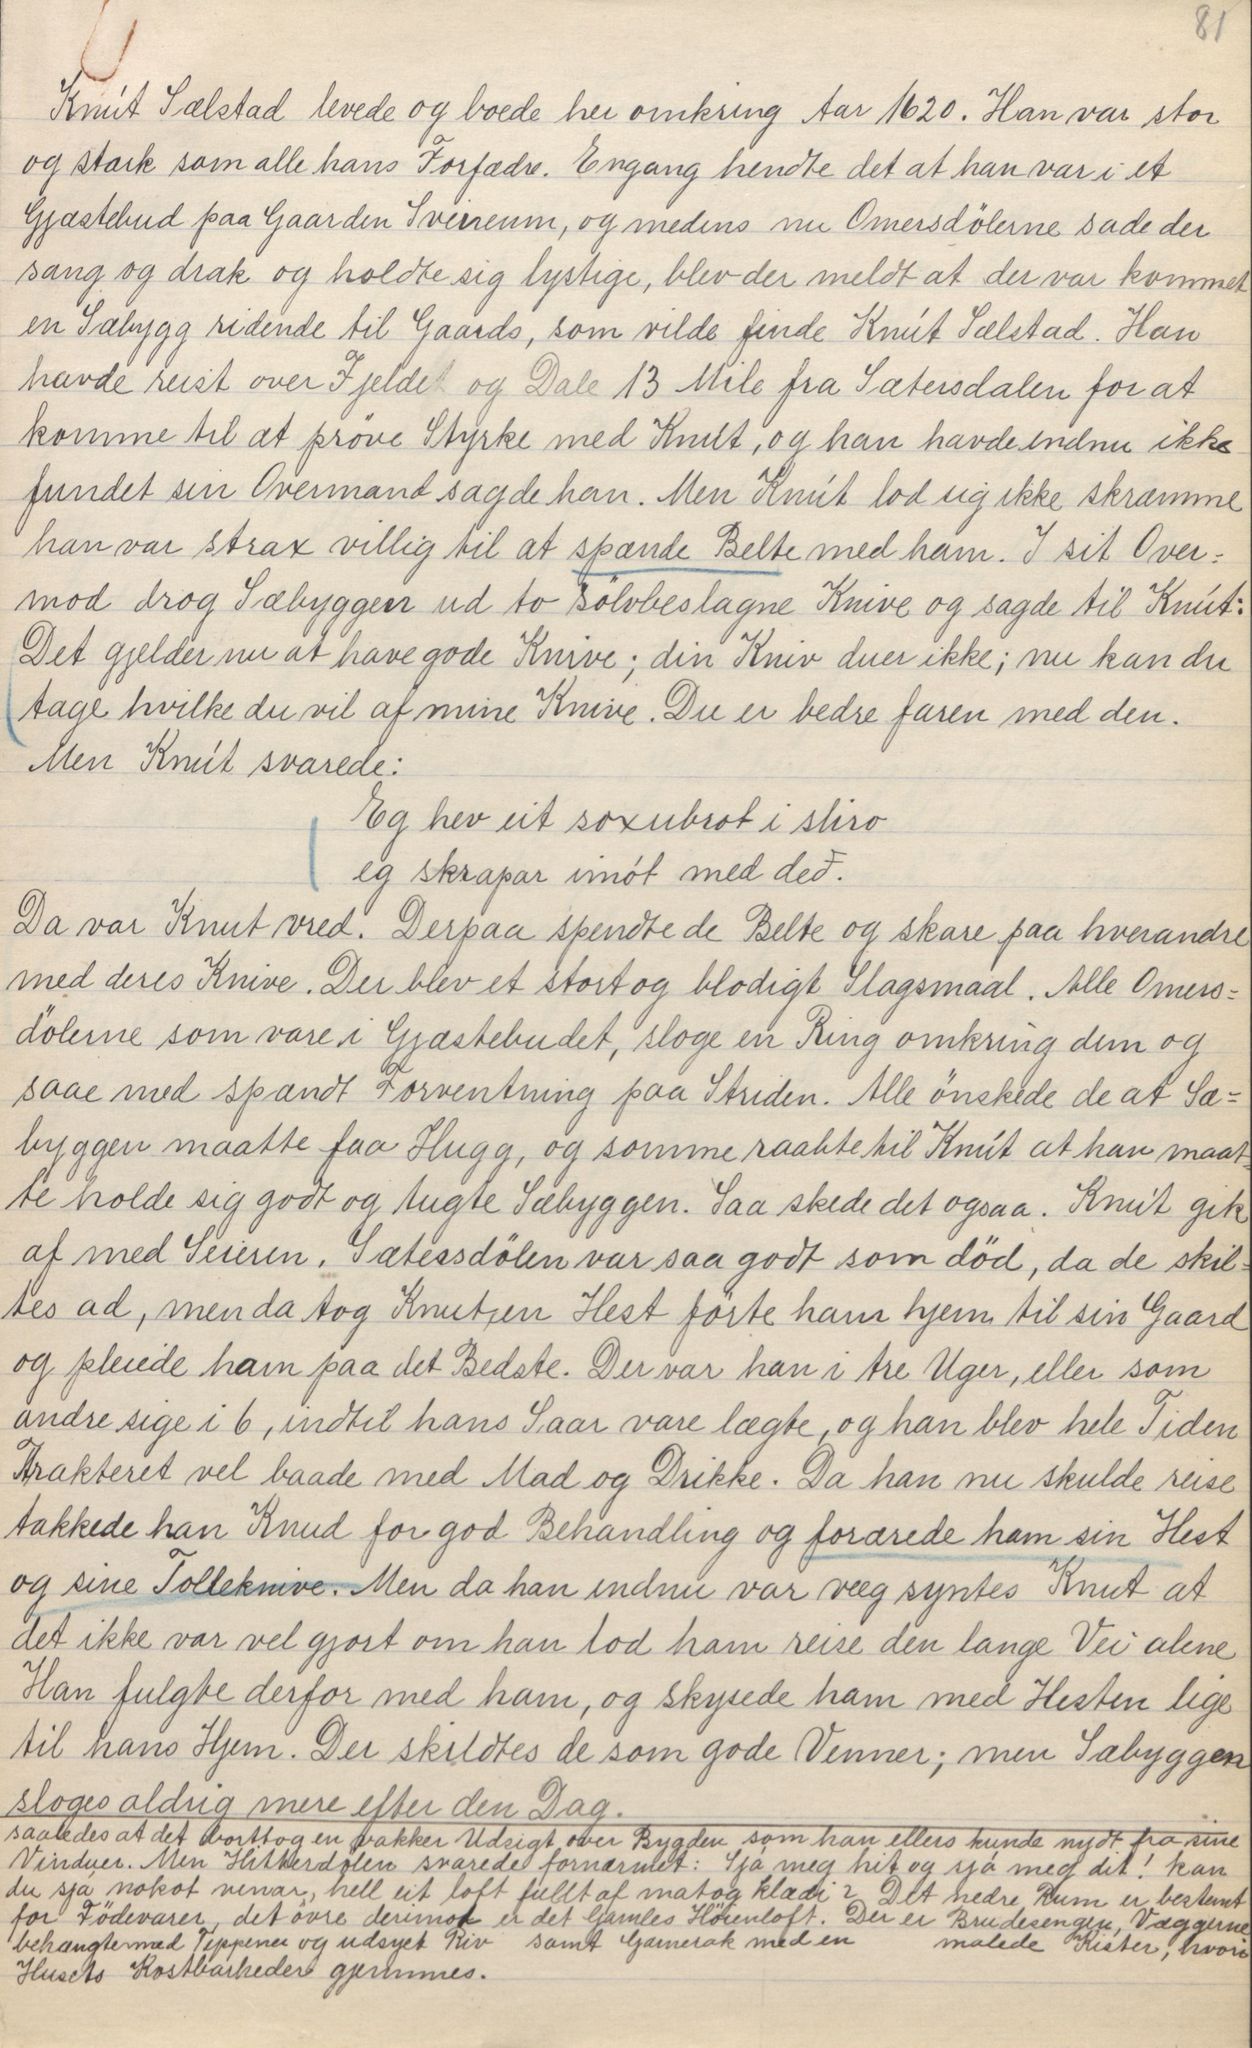 81
Knút Sælstad levede og boede her omkring Aar 1620. Han var stor
og stærk som alle hans Forfædre. Engang hendte det at han var i et
Gjæstebud paa Gaarden Sveineum, og medens nu Omersdölerne sade der
sang og drak og holdte sig lystige, blev der meldt at der var kommet
en Sæbygg ridende til Gaards, som vilde finde Knút Sælstad. Han
havde reist over Fjeldet og Dale 13 Mile fra Sætersdalen for at
komme til at pröve Styrke med Knút, og han havde endnu ikke
fundet sin Overmand sagde han. Men Knút lod sig ikke skræmme
han var strax villig til at spænde Belte med ham. I sit Over=
mod drog Sæbyggen ud to sölvbeslagne Knive og sagde til Knút:
Det gjelder nu at have gode Knive; din Kniv duer ikke; nu kan du
tage hvilke du vil af mine Knive. Du er bedre faren med den.
Men Knút svarede:
Eg hev eit soxubrot i sliro
eg skrapar imót med deð.
Da var Knut vred. Derpaa spendte de Belte og skare paa hverandre
med deres Knive. Der blev et stort og blodigt Slagsmaal. Alle Omers=
dölerne som vare i Gjæstebudet, sloge en Ring omkring dem og
saae med spændt Forventning paa Striden. Alle önskede de at Sæ=
byggen maatte faa Hugg, og somme raabte til Knút at han maat=
te holde sig godt og tugte Sæbyggen. Saa skede det ogsaa. Knút gik
af med Seieren. Sætessdölen var saa godt som död, da de skil=
tes ad, men da tog Knut en Hest förte ham hjem til sin Gaard
og pleiede ham paa det Bedste. Der var han i tre Uger, eller som
andre sige i 6, indtil hans Saar vare lægte, og han blev hele Tiden
Trakteret vel baade med Mad og Drikke. Da han nu skulde reise
takkede han Knud for god Behandling og forærede ham sin Hest
og sine Tolleknive. Men da han endnu var væg syntes Knut at
det ikke var vel gjort om han lod ham reise den lange Vei alene
Han fulgte derfor med ham, og skysede ham med Hesten lige
til hans Hjem. Der skildtes de som gode Venner; men Sæbyggen
sloges aldrig mere efter den Dag.
saaledes at det borttog en vakker Udsigt over Bygden som han ellers kunde nydt fra sine
Vinduer. Men Hitterdölen svarede fornærmet: Sjá meg hit og sjá meg dit! kan
du sjá nokot venar, hell eit loft fullt af mat og klædi? Det nedre Rum er bestemt
for Födevarer, det övre derimot er det Gamles Höienloft. Der er Brudesengen, Væggerne
behængte med Teppener og udsyet Riv samt Gamerak med en malede Kister, hvori
Husets Kostbarheder gjemmes.